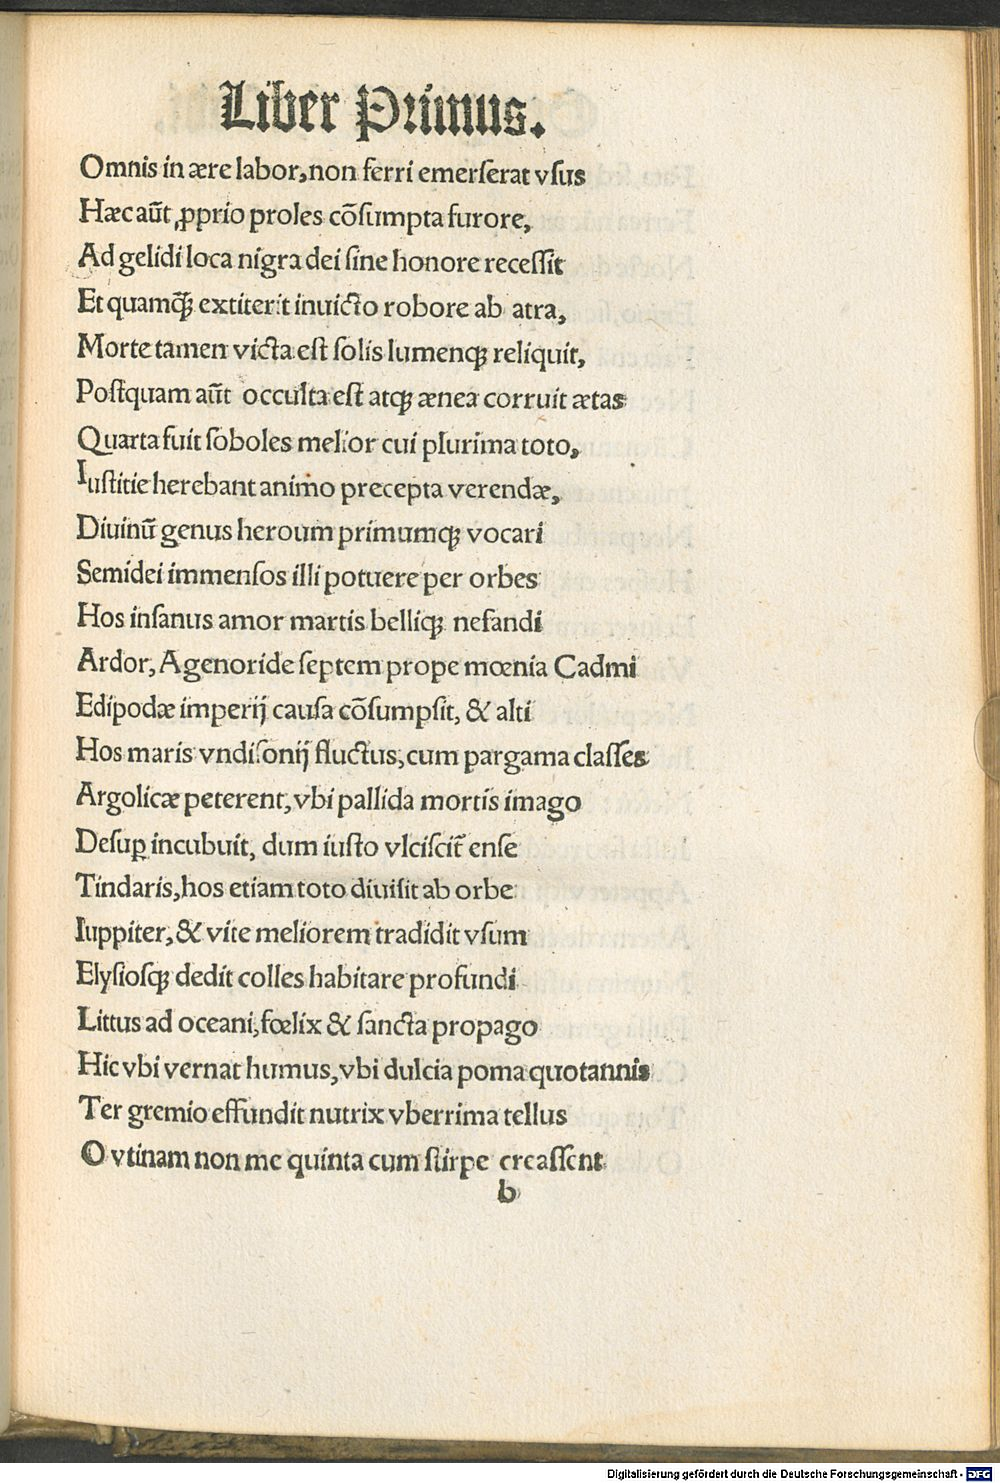 Liber Primus.
Omnis in ære labor, non ferri emerſerat vſus
Hæc aūt ꝓprio proles cōſumpta furore,
Ad gelidi loca nigra dei ſine honore receſſit
Et quamqꝫ extiterit inuicto robore ab atra,
Morte tamen victa eſt ſolis lumenqꝫ reliquit,
Poſtquam aūt occulta eſt atqꝫ ænea corruit ætas
Quarta fuit ſoboles melior cui plurima toto,
Iuſtitie herebant animo precepta verendæ,
Diuinū genus heroum primumqꝫ vocari
Semidei immenſos illi potuere per orbes
Hos inſanus amor martis belliqꝫ nefandi
Ardor, Agenoride ſeptem prope mœnia Cadmi
Edipodæ imperij cauſa cōſumpſit, & alti
Hos maris vndiſonij fluctus, cum pargama claſſes
Argolicæ peterent, vbi pallida mortis imago
Deſuꝑ incubuit, dum iuſto vlciſcit̄ enſe
Tindaris, hos etiam toto diuiſit ab orbe
Iuppiter, & vite meliorem tradidit vſum
Elyſioſqꝫ dedit colles habitare profundi
Littus ad oceani, fœlix & ſancta propago
Hic vbi vernat humus, vbi dulcia poma quotannis
Ter gremio effundit nutrix vberrima tellus
O vtinam non me quinta cum ſtirpe creaſſent
b
Digitalisierung gefördert durch die Deutsche Forschungsgemeinschaft - DFG